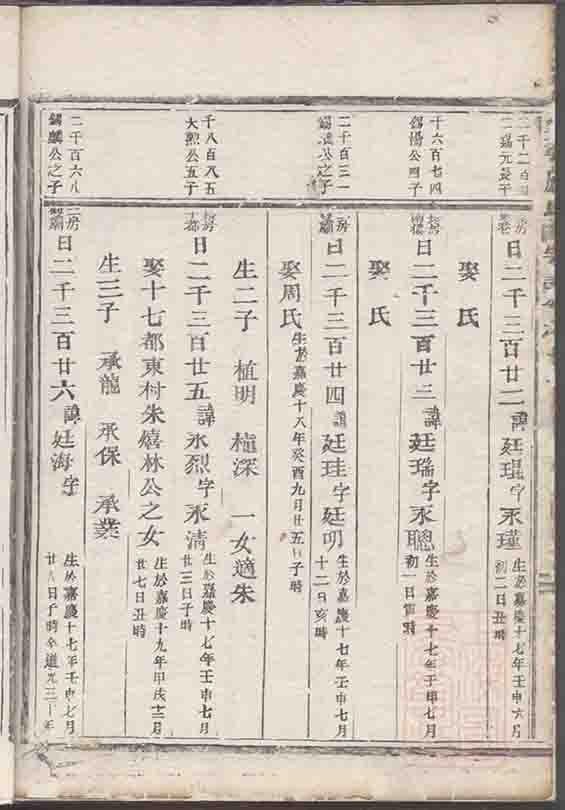 日二千三百廿二諱廷琨字永瑾 生於嘉慶十七年壬申六月初二日丑時
娶氏
十六百七四
錫揚公四子
日二千三百廿三諱廷瑞字永聰 生於嘉慶十七年壬申七月初一日寅時
娶氏
二千百三一
錫公之子
日二千三百廿四諱廷珪字廷明 生於嘉慶十七年壬申七月十二日亥時
娶周氏 生於嘉慶十八年癸酉九月廿五日子時
生二子 植明 植深 一女適朱
千八百八五
大烈公五子
日二千三百廿五諱永烈字永清 生於嘉慶十七年壬申七月廿三日子時
娶十七都東村朱嬉林公之女 生於嘉慶十九年甲戌十二月廿七日丑時
生三子 承龍 承保 承業
二千百六八
錫麟公之子
日二千三百廿六諱廷海字 生於嘉慶十七年壬申七月廿八日子時卒道光三十年